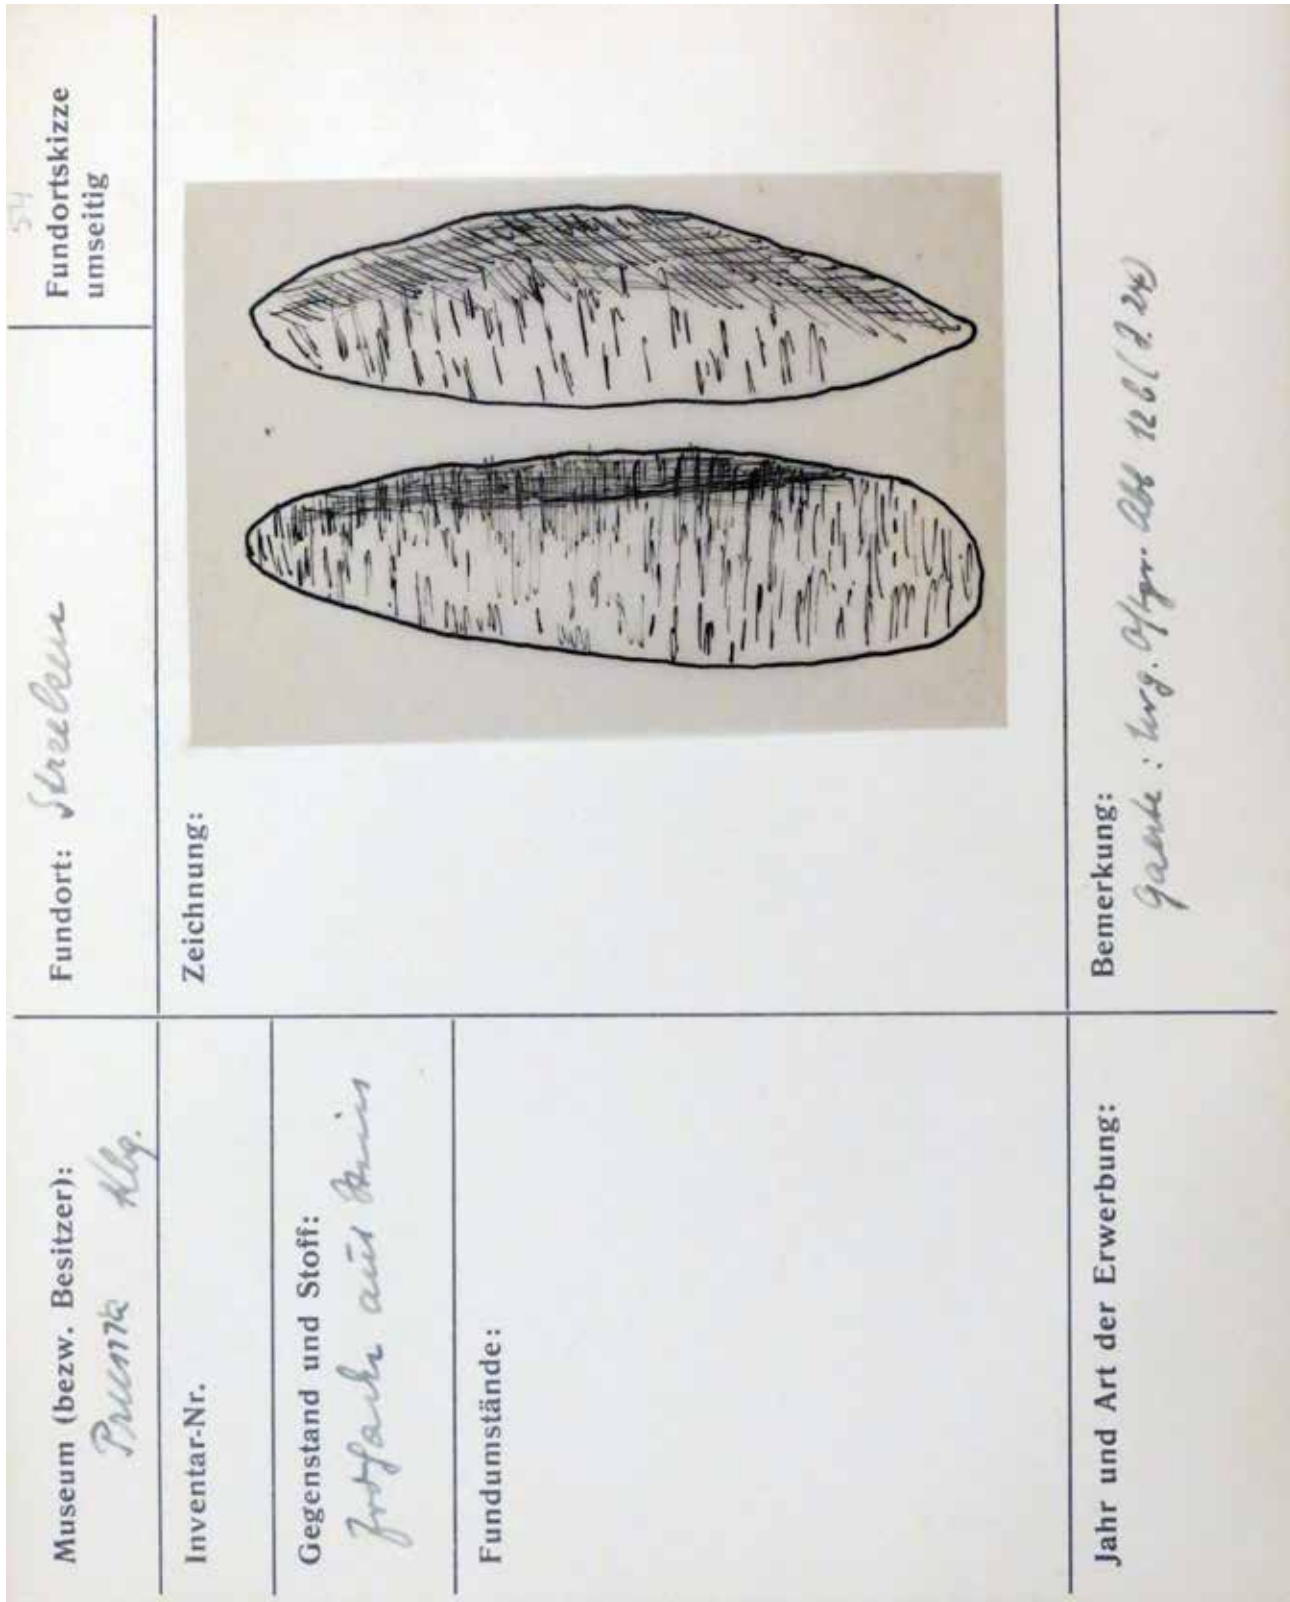 Museum (bezw. Besitzer):
Prussia Kbg.
Fundort: Strobehnen
54
Fundortskizze
umseitig
Inventar-Nr.
Gegenstand und Stoff:
aus Stein
Fundumstände:
Zeichnung:
Jahr und Art der Erwerbung:
Bemerkung:
Gaerte: Urg. Ostpr. Abb 12b (S. 24)